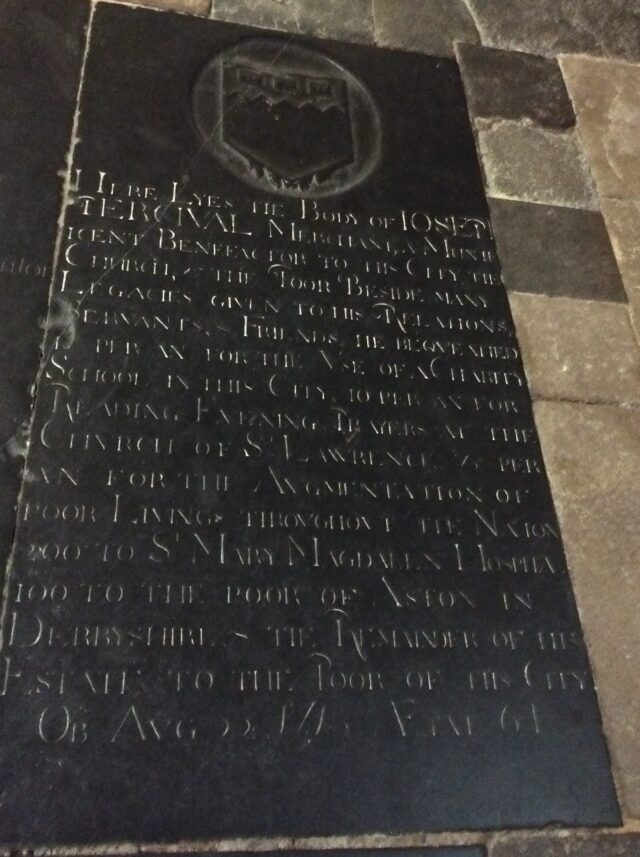 HERE LYES THE BODY OF IOSEPH
PERCIVAL MERCHANT, A MUNIF
ICENT BENEFACTOR TO THIS CITY, THE
CHURCH, & THE POOR BESIDE MANY
LEGACIES GIVEN TO HIS RELATIONS,
SERVANTS, & FRIENDS, HE BEQVEATHED
PER AN FOR THE VSE OF A CHARITY
SCHOOL IN THIS CITY, 10 PER AN FOR
READING EVENING PRAYERS AT THE
CHVRCH OF ST LAWRENCE PER
AN FOR THE AVGMENTATION OF
POOR LIVINGS THROVGHOVT THE NATION
200 TO ST MARY MAGDALEN HOSPITAL
100 TO THE POOR OF ASTON IN
DERBYSHIRE, & THE REMAINDER OF HIS
ESTATE TO THE POOR OF THIS CITY
OB AVG ÆTAT 64